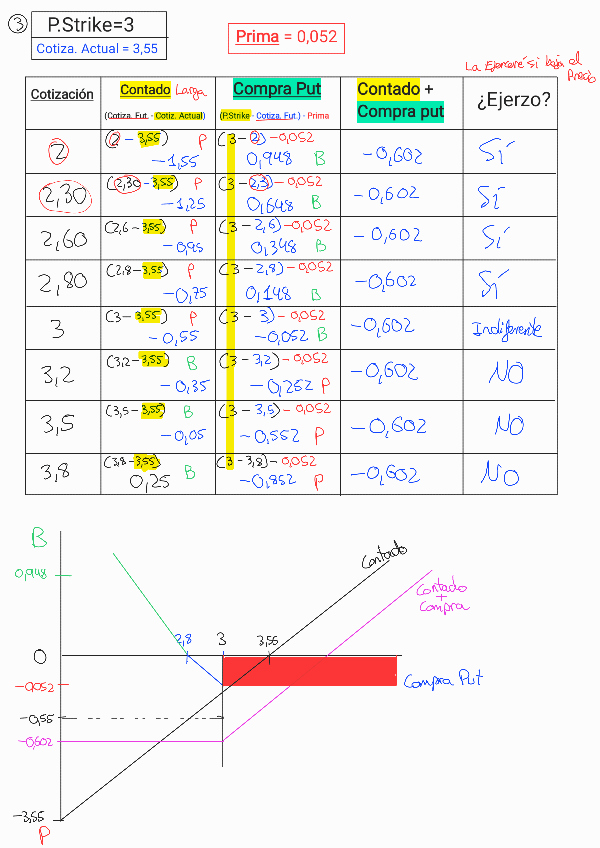 3
P.Strike=3
Cotiza. Actual = 3,55
Prima = 0,052
La Ejerceré si baja el Precio
Cotización
Contado Larga
(Cotiza. Fut. - Cotiz. Actual)
Compra Put
(P.Strike - Cotiza. Fut.) - Prima
Contado +
Compra put
¿Ejerzo?
2
(2 - 3,55) P
-1,55
(3 - 2) - 0,052
0,948 B
-0,602
SÍ
2,30
(2,30 - 3,55) P
-1,25
(3 - 2,3) - 0,052
0,648 B
-0,602
SÍ
2,60
(2,6 - 3,55) P
-0,95
(3 - 2,6) - 0,052
0,348 B
-0,602
SÍ
2,80
(2,8 - 3,55) P
-0,75
(3 - 2,8) - 0,052
0,148 B
-0,602
SÍ
3
(3 - 3,55) P
-0,55
(3 - 3) - 0,052
-0,052 B
-0,602
Indiferente
3,2
(3,2 - 3,55) B
-0,35
(3 - 3,2) - 0,052
-0,252 P
-0,602
NO
3,5
(3,5 - 3,55) B
-0,05
(3 - 3,5) - 0,052
-0,552 P
-0,602
NO
3,8
(3,8 - 3,55)
0,25 B
(3 - 3,8) - 0,052
-0,852 P
-0,602
NO
B
Contado
0,948
Contado
+
Compra
2,8 3 3,55
0
-0,052
Compra Put
-0,55
-0,602
-3,55
P